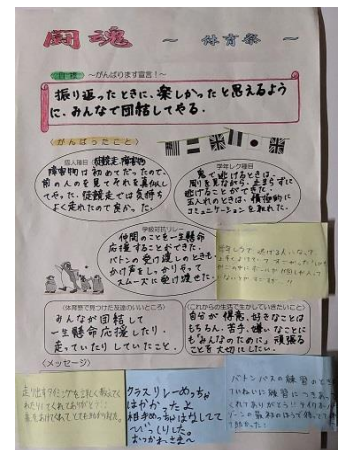 闘魂 ～ 体育祭 ～
目標 ～がんばります宣言！～
振り返ったときに、楽しかったと思えるよう
に、みんなで団結してやる。
〈がんばったこと〉
個人種目（徒競走、障害物
障害物は初めてだったので、
前の人のを見てそれを真似し
てやった。徒競走では気持ち
よく走れたので良かった。
学年レク種目
鬼で逃げるときは、
周りを見ながら、止まらずに
逃げることができた。
玉入れのときは、積極的に
コミュニケーションを取れた。
学級対抗リレー
仲間のことを一生懸命
応援することができた。
バトンの受け渡しのときも
かけ声をしっかりやって
スムーズに受け渡せた。
〈体育祭で見つけた友達のいいところ〉
みんなが団結して
一生懸命応援したり、
走っていたりしていたこと。
〈これからの生活で生かしていきたいこと〉
自分が得意、好きなことは
もちろん、苦手、嫌いなことに
も「みんなのために」頑張れる
ことを大切にしたい。
〈メッセージ〉
走り出すタイミングを上手く教えてく
れたりしてくれてありがとう
クラスリレーめっちゃ
はやかったよ
相手めっちゃはなしてて
びっくりした
おつかれさま～
バトンパスの練習のとき
ていねいに練習につきあっ
てくれてありがとう！